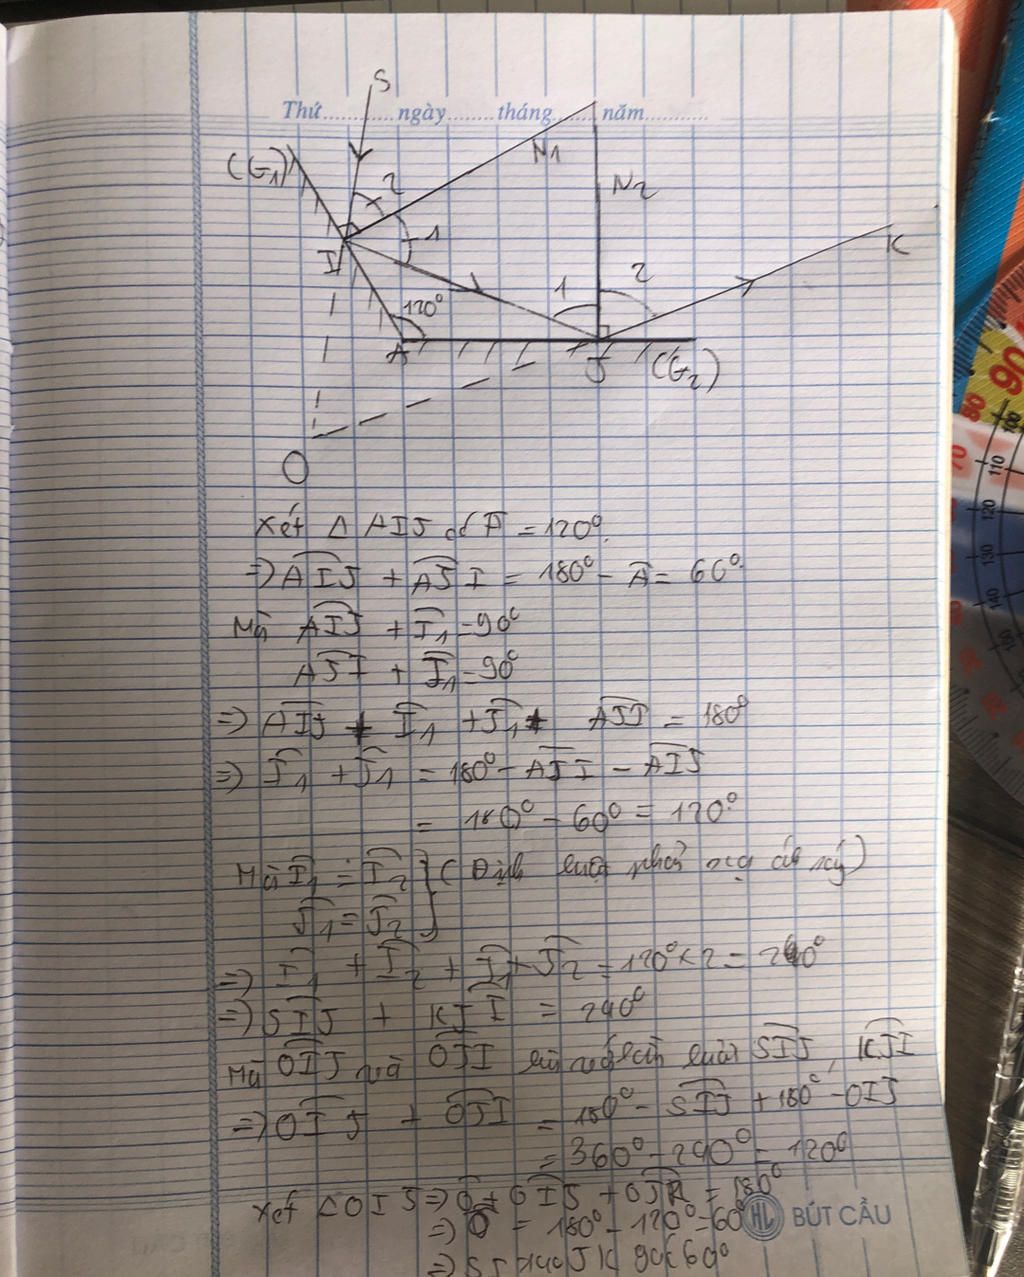 S
Thứ............ngày........tháng........năm...........
(G1)
2
N1
N2
1
I
K
120°
1
2
A
J
(G2)
O
Xét Δ AIJ có A = 120°.
=> AIJ + AJI = 180° - A = 60°.
Mà AIJ + I1 = 90°
AJI + J1 = 90°
=> AIJ + I1 + J1 + AJI = 180°
=> I1 + J1 = 180° - AJI - AIJ
= 180° - 60° = 120°
Mà I1 = I2 } (Định luật phản xạ ánh sáng)
J1 = J2
=> I1 + I2 + J1 + J2 = 120° x 2 = 240°
=> SIJ + KJI = 240°
Mà OIJ và OJI SIJ, KJI
=> OIJ + OJI = 180° - SIJ + 180° - OIJ
= 360° - 240° = 120°
Xét Δ OIJ => O + OIJ + OJI = 180°
=> O = 180° - 120° = 60°
HL BÚT CẦU
=> SI JK góc 60°